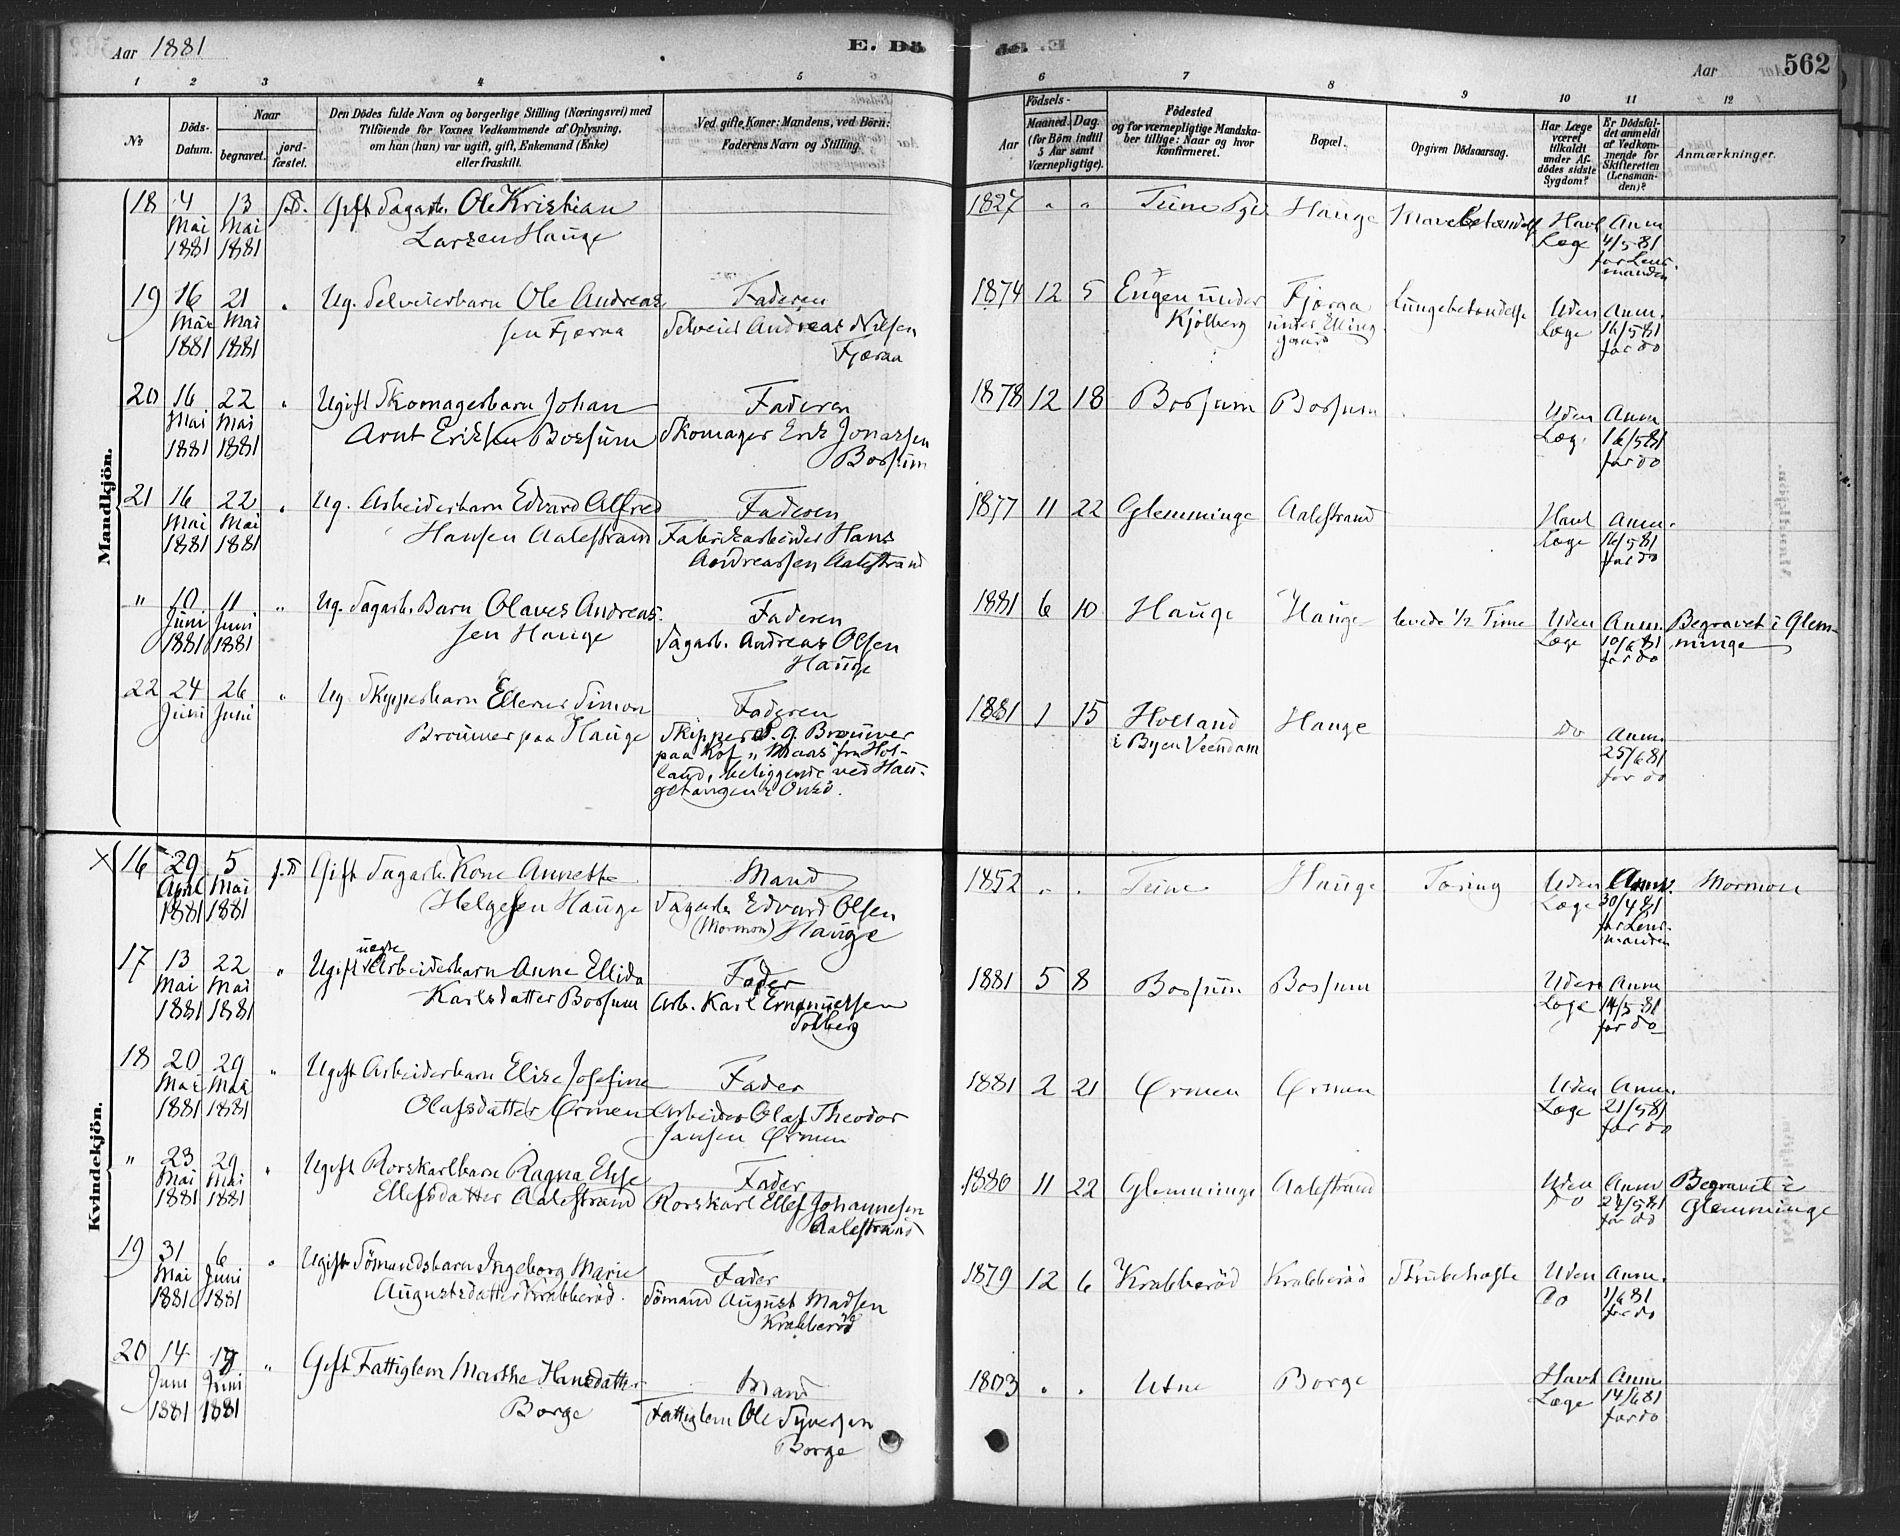 Aar 1881
E. Dö
562
Aar
1 2 3 4 5 6 7 8 9 10 11 12
№
Döds-Datum.
Naar
begravet.
jord-fæstet.
Den Dödes fulde Navn og borgerlige Stilling (Næringsvei) med
Tilföiende for Voxnes Vedkommende af Oplysning,
om han (hun) var ugift, gift, Enkemand (Enke)
eller fraskilt.
Ved gifte Koner: Mandens, ved Börn:
Faderens Navn og Stilling.
Födsels-
Aar
Maaned. Dag.
(for Börn indtil
5 Aar samt
Værnepligtige).
Födested
og for værnepligtige Mandska-
ber tillige: Naar og hvor
konfirmeret.
Bopæl.
Opgiven Dödsaarsag.
Har Læge
været
tilkaldt
under Af-
dödes sidste
Sygdom?
Er Dödsfal-
det anmeldt
af Vedkom-
mende for
Skifteretten
(Lensman-
den)?
Anmærkninger.
Mandkjön.
18 4 13 s.D. Gift Dagarb. Ole Kristian 1827 " " Tune Hauge Havt Anm
Mai Mai Larsen Hauge Læge 4/5 81
1881 1881 for Lens-
manden
19 16 21 " Ug. Selveierbarn Ole Andreas- Faderen 1874 12 5 Engen under Fjæraa Lungebetændelse Uden Anm.
Mai Mai sen Fjæraa Selveier Andreas Nilsen Kjölberg under Elling- Læge 16/5 81
1881 1881 Fjæraa gaard for do
20 16 22 " Ugift Skomagerbarn Johan Faderen 1878 12 18 Bossum Bossum Uden Anm
Mai Mai Arnt Eriksen Bossum Skomager Erik Jonassen Læge 16/5 81
1881 1881 Bossum for do
21 16 22 " Ug. Arbeiderbarn Edvard Alfred Faderen 1877 11 22 Glemminge Aalestrand Havt Anm.
Mai Mai Hansen Aalestrand Fabrikarbeider Hans Læge 16/5 81
1881 1881 Andreassen Aalestrand for do
" 10 11 " Ug. Dagarb. Barn Olaves Andreas- Faderen 1881 6 10 Hauge Hauge levede 1/2 Time Uden Anm. Begravet i Glem-
Juni Juni sen Hauge Dagarb. Andreas Olsen Læge 10/6 81 minge
1881 1881 Hauge for do
22 24 26 " Ug Skipperbarn Simon Faderen 1881 1 15 Holland Hauge do Anm.
Juni Juni Brouwer paa Hauge Skipper S. G. Brouwer i Byen Veendam 25/6 81
paa Kof „Maas" fra Hol- for do
land, beliggende ved Hau-
getangen i Onsö.
Kvindekjön.
X 16 29 5 s.D Gift Dagarb. Kone Annette Mand 1852 " " Tune Hauge Tæring Uden Anm. Mormon
April Mai Helgesen Hauge Dagarb. Edvard Olsen Læge 30/4 81
1881 1881 (Mormon) Hauge for Lens-
manden
17 13 22 " Ugift uægte Arbeiderbarn Anne Ellida Fader 1881 5 8 Bossum Bossum Uden Anm
Mai Mai Karlsdatter Bossum Arb. Karl Emanuelsen Læge 14/5 81
1881 1881 Solberg for do
18 20 29 " Ugift Arbeiderbarn Elise Josefine Fader 1881 2 21 Ørmen Ørmen Uden Anm.
Mai Mai Olafsdatter Ørmen Arbeider Olaf Theodor Læge 21/5 81
1881 1881 Jansen Ørmen for do
" 23 29 " Ugift Rorskarlbarn Ragna Fader 1880 11 22 Glemminge Aalestrand Uden Anm Begravet i
Mai Mai Ellefsdatter Aalestrand Rorskarl Ellef Johannesen do 24/5 81 Glemminge
1881 1881 Aalestrand for do
19 31 6 " Ugift Sömandsbarn Ingeborg Marie Fader 1879 12 6 Krabberöd Krabberöd Strubehoste Uden Anm.
Mai Juni Augustsdatter Krabberöd. Sömand August Madsen do 1/6 81
1881 1881 Krabberöd for do
20 14 19 " Gift Fattiglem Marthe Hansdatter Mand 1803 " " Utne Borge Havt Anm
Juni Juni Borge Fattiglem Ole Syversen Læge 14/6 81
1881 1881 Borge for do